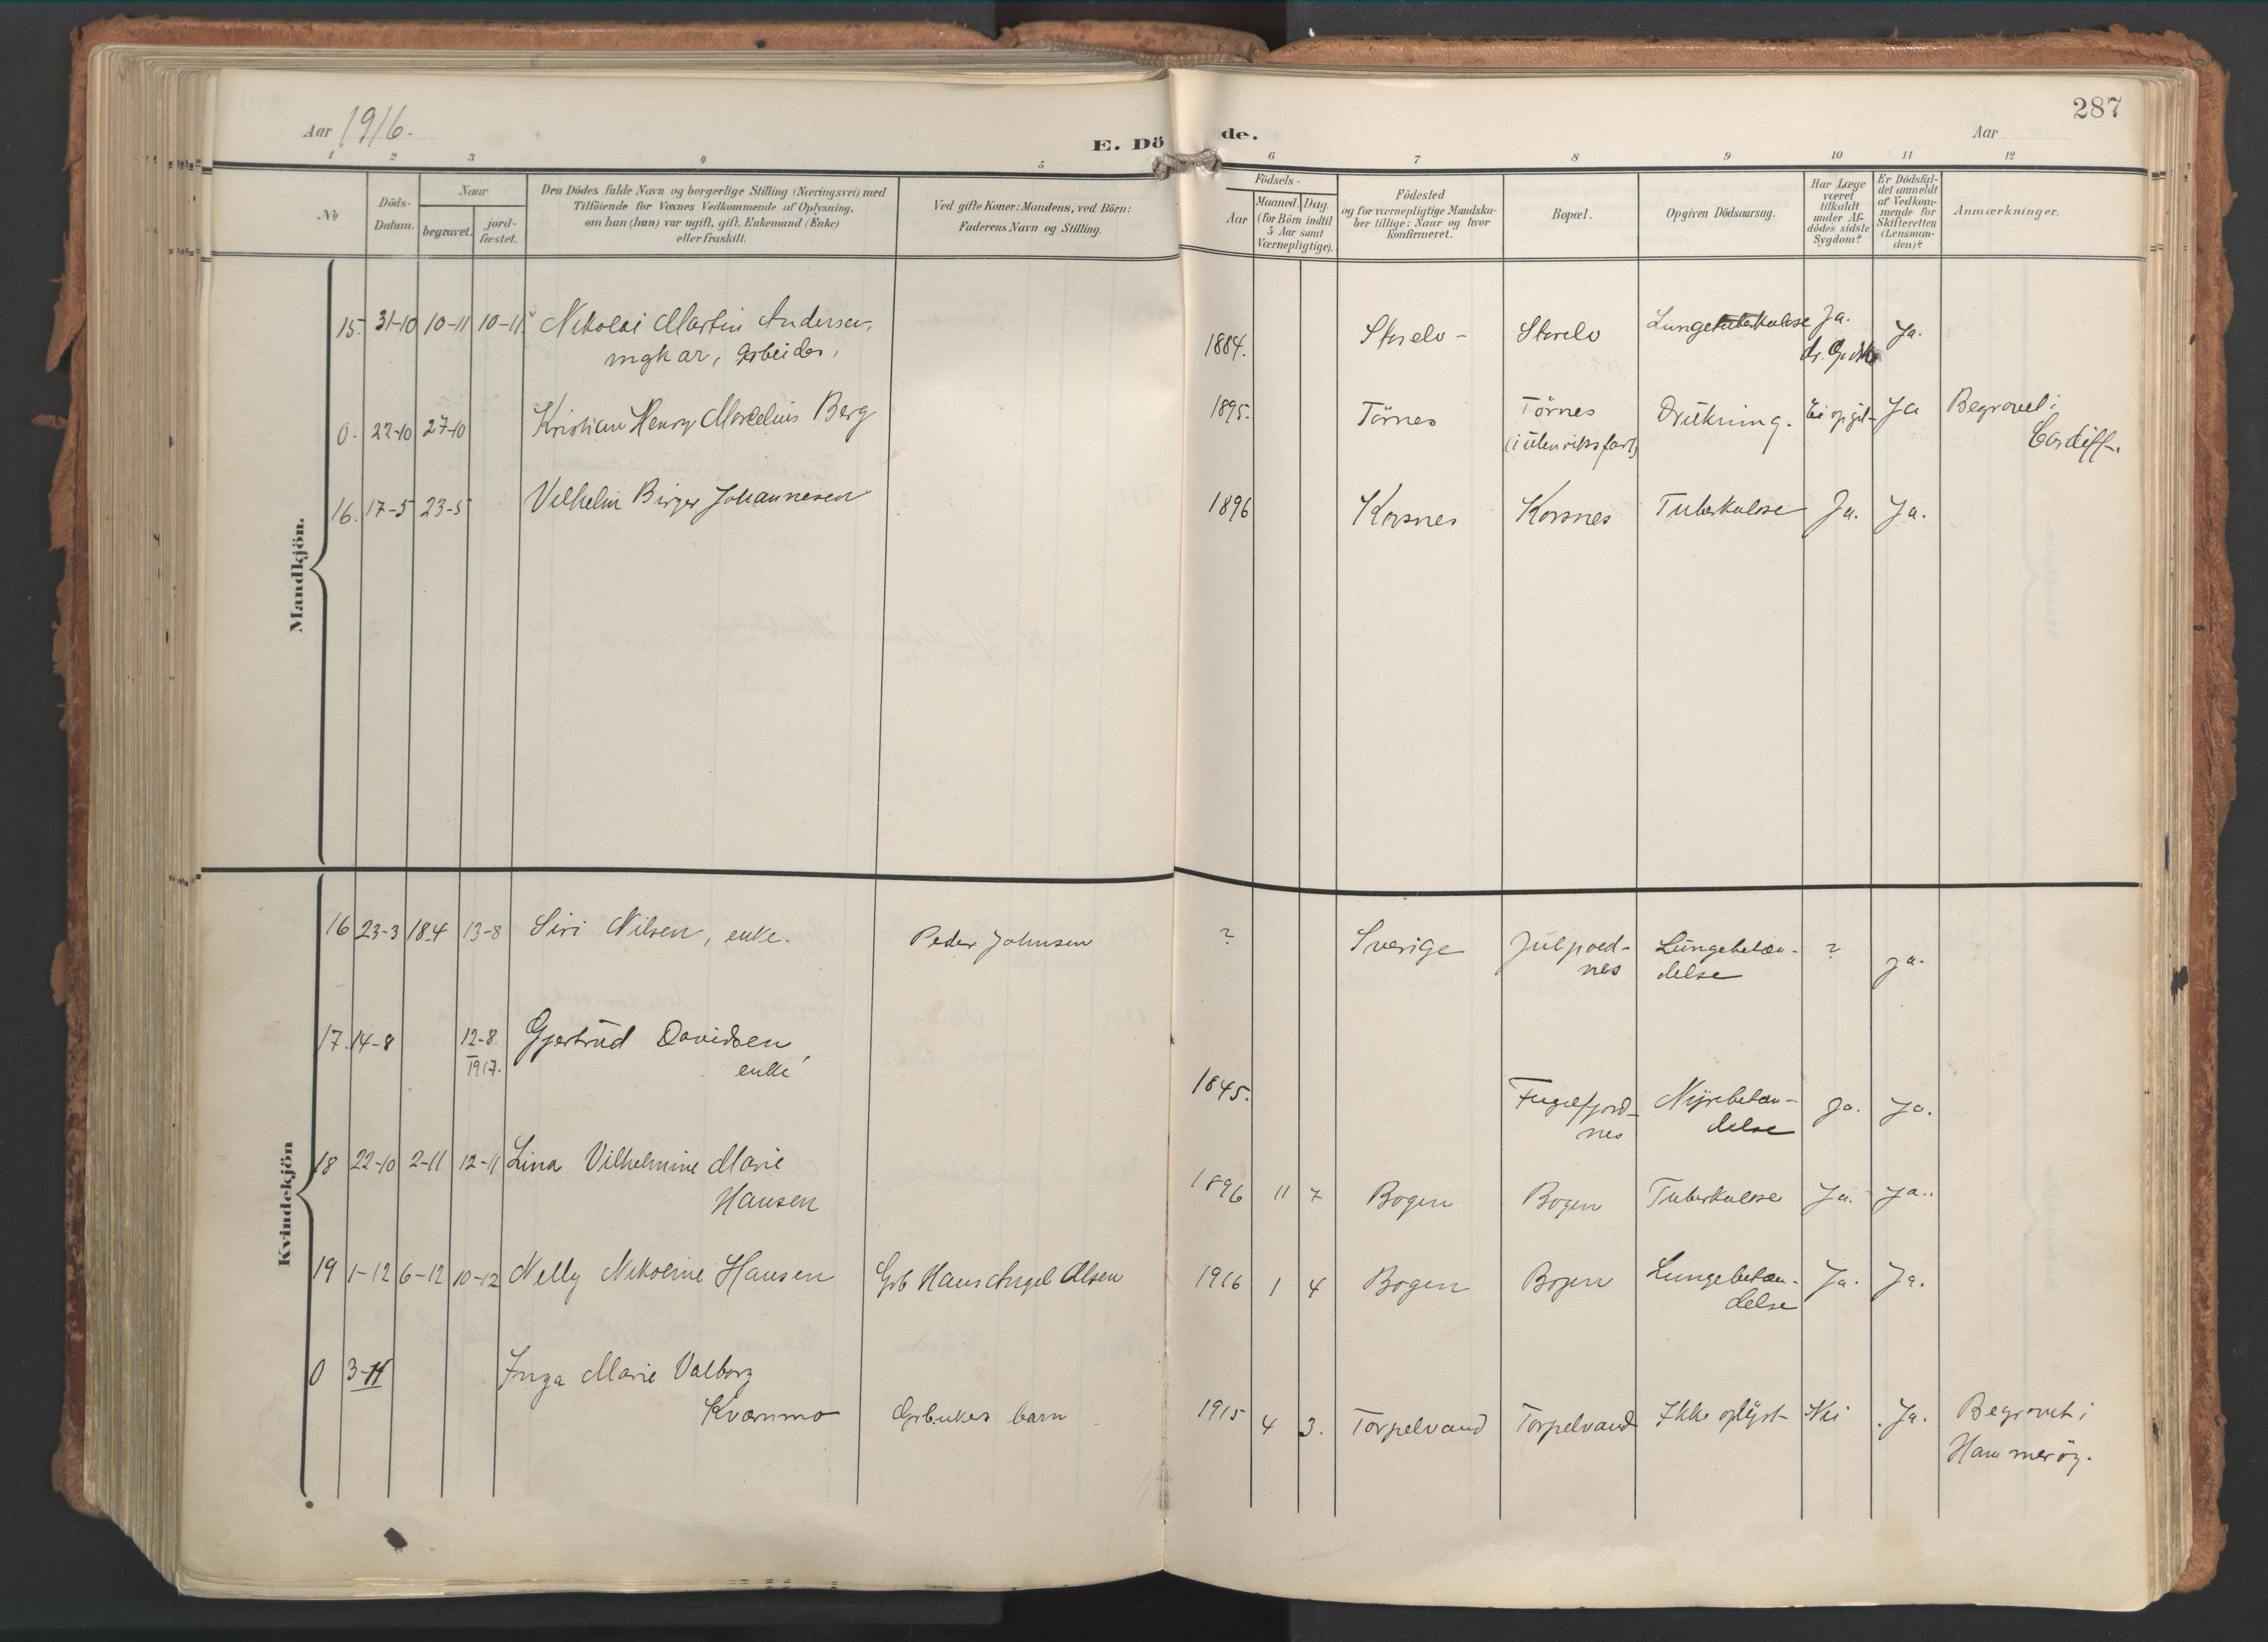 287
Aar 1916.
E. Dö de.
Aar
1 2 3 4 5 6 7 8 9 10 11 12
No
Döds-
Datum.
Naar
begravet.
jord-
fæstet.
Den Dödes fulde Navn og borgerlige Stilling (Næringsvei) med
Tilföiende for Voxnes Vedkommende af Oplysning,
om han (hun) var ugift, gift, Enkemand (Enke)
eller fraskilt.
Ved gifte Koner: Mandens, ved Börn:
Faderens Navn og Stilling.
Födsels-
Aar
Maaned. Dag.
(for Börn indtil
5 Aar samt
Værnepligtige).
Födested
og for værnepligtige Mandska-
ber tillige: Naar og hvor
konfirmeret.
Bopæl.
Opgiven Dödsaarsag.
Har Læge
været
tilkaldt
under Af-
dödes sidste
Sygdom?
Er Dödsfal-
det anmeldt
af Vedkom-
mende for
Skifteretten
(Lensman-
den)?
Anmærkninger.
Mandkjön.
15. 31-10 10-11 10-11 Nikolai Martin Andersen, 1884. Storelv- Storelv Lungetuberkulose Ja. Ja.
ungkar, arbeider,
dr.
0. 22-10 27-10 Kristian Henry Marselius Berg 1895. Törnes Törnes Drukning. Ei opgit- Ja Begravet i
(i utenriksfart)
Cardiff.
16. 17-5 23-5 Vilhelm Birger Johannesen 1896 Korsnes Korsnes Tuberkulose Ja. Ja.
Kvindekjön
16 23-3 18-4 13-8 Siri Nilsen, enke. Peder Johnsen ? Sverige Lungebetæn- ? ja.
nes delse
17. 14-8 12-8. Gjertrud Davidsen,
1917. enke
1845. Fuglfjord- Nyrebetæn- Ja. Ja.
nes delse
18 22-10 2-11 12-11 Lina Vilhelmine Marie
Hansen 1896 11 7 Bogen Bogen Tuberkulose Ja. Ja.
19 1-12 6-12 10-12 Nelly Nikoline Hansen Grb Hans Angel Olsen 1916 1 4 Bogen Bogen Lungebetæn- Ja. Ja.
delse
0 3-11 Inga Marie Valborg
Kvammo Grbukers barn 1915 4 3. Torpelvand Torpelvand Ikke oplyst Nei Ja. Begravet i
Hammeröy.